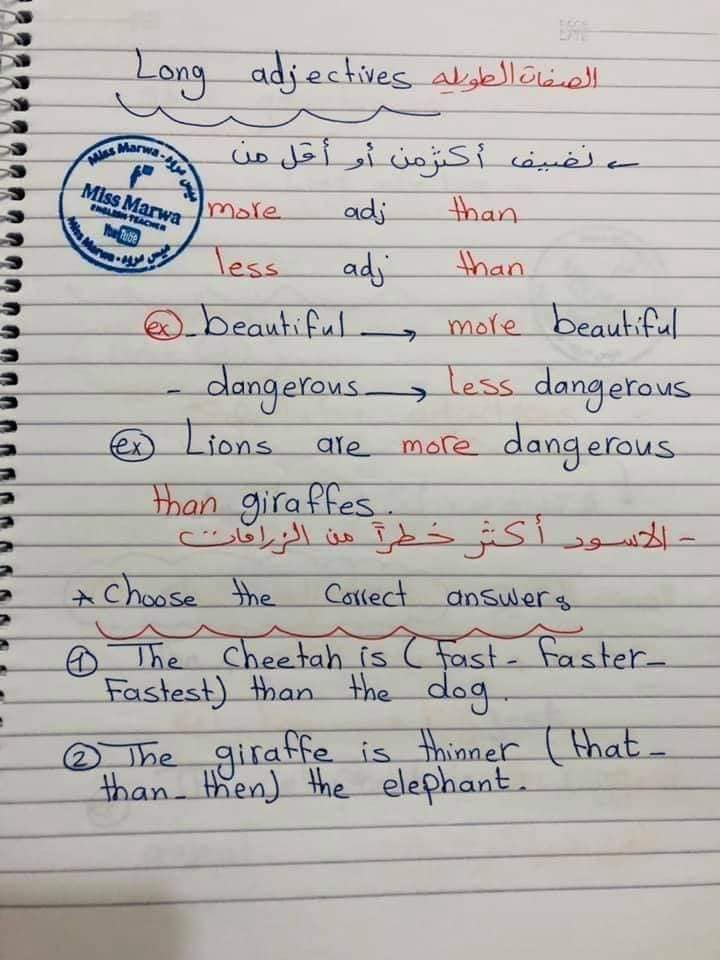 Long adjectives الصفات الطويله
← نضيف أكثر من أو أقل من
Miss Marwa - ميس مروه
Miss Marwa
ENGLISH TEACHER
YouTube
Miss Marwa - ميس مروه
more adj than
less adj than
ex - beautiful → more beautiful
- dangerous → less dangerous
ex Lions are more dangerous
than giraffes.
- الاسود أكثر خطراً من الزرافات
* Choose the correct answers
1 The cheetah is (fast - faster -
Fastest) than the dog.
2 The giraffe is thinner (that -
than - then) the elephant.